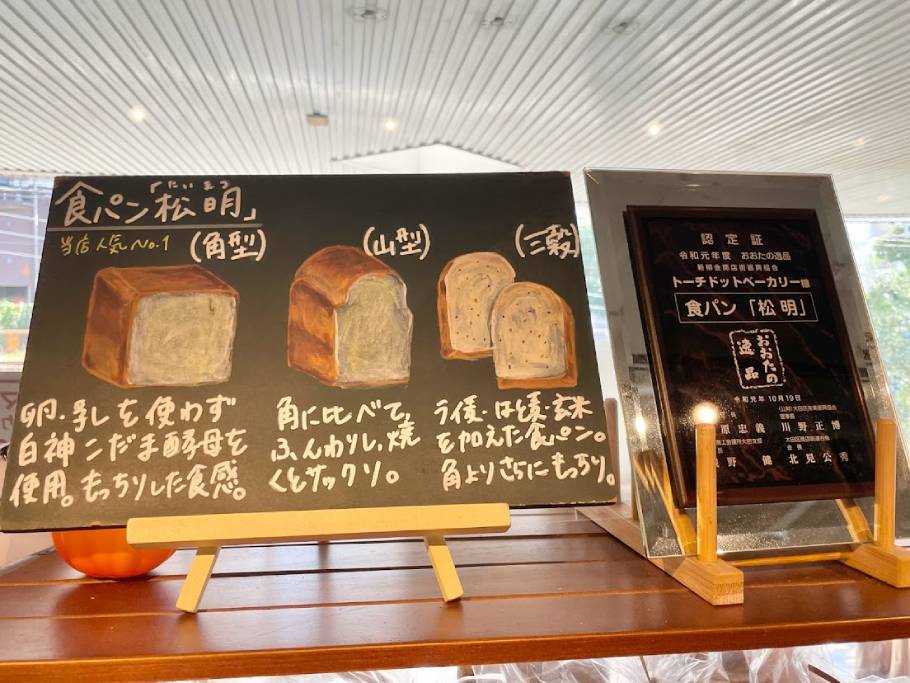 食パン「松明」
たいまつ
当店人気No.1
(角型)
卵・乳を使わず
白神こだま酵母を
使用。もっちりした食感。
(山型)
角に比べて、
ふんわりし、焼
くとサックリ。
(三穀)
ライ麦・はと麦・玄米
を加えた食パン。
角よりさらにもっちり。
認定証
令和元年度 おおたの逸品
トーチドットベーカリー様
食パン「松明」
おおたの
逸品
令和元年10月19日
原 忠義
川野正博
野 健
北見公秀